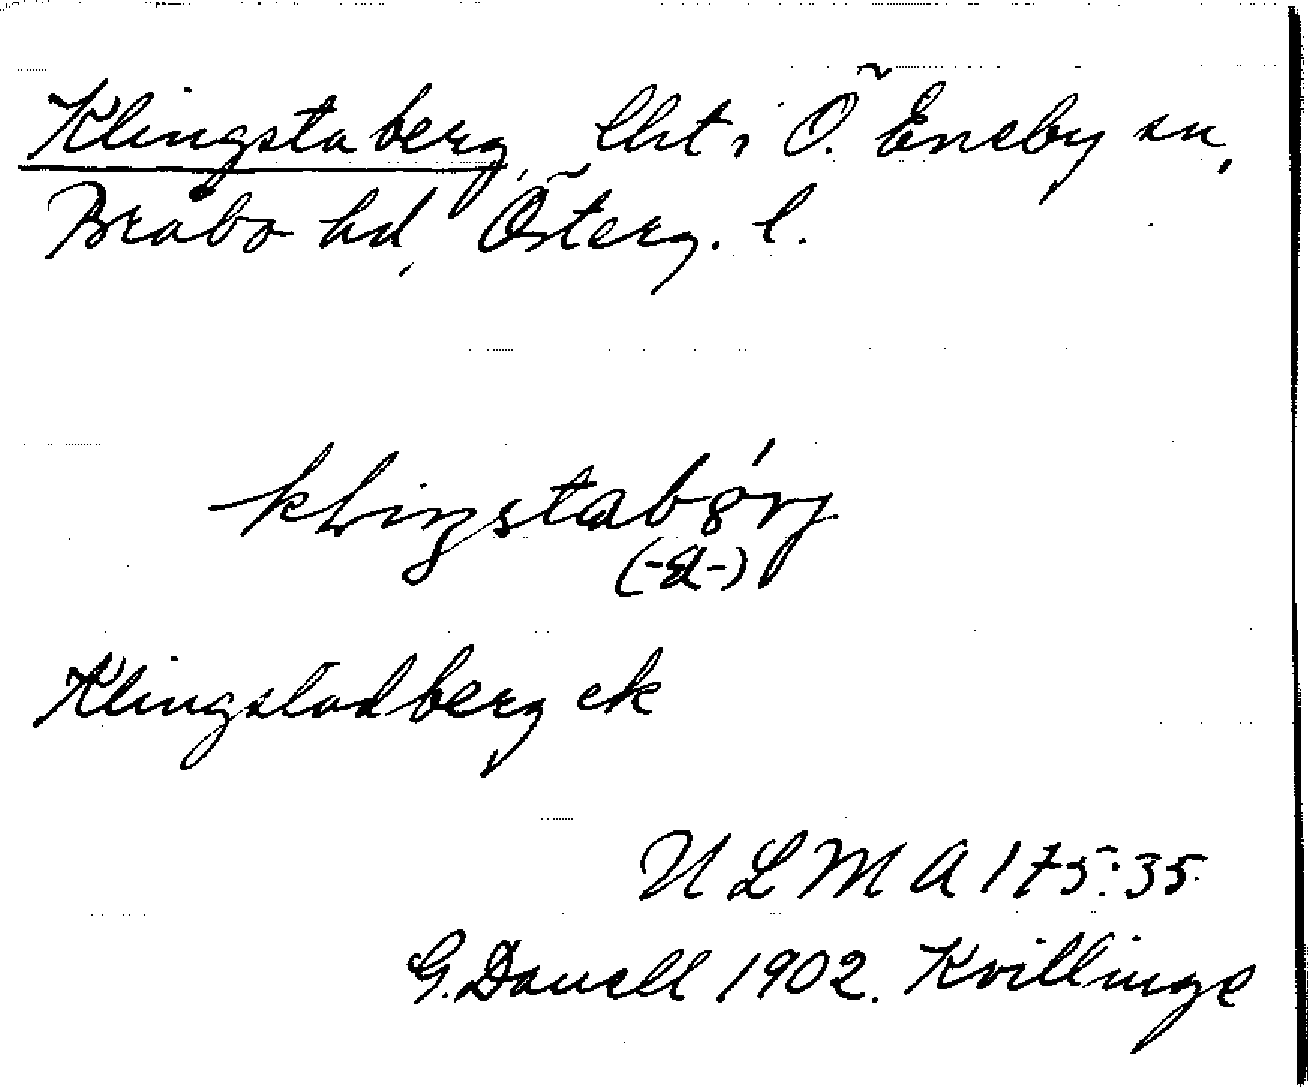 Klingstaberg, lht i Ö. Eneby sn,
Bråbo hd, Österg. l.
Klingstadberg ek
ULMA 175:35
G. Danell 1902. Kvillinge